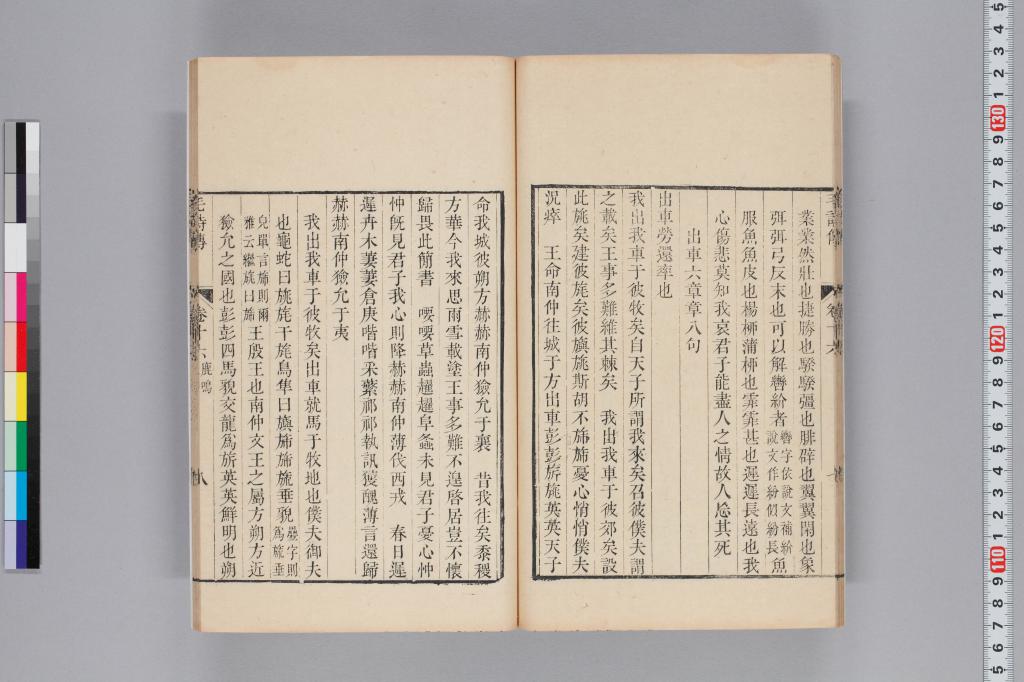 業業然壯也捷勝也騤騤彊也腓辟也翼翼閑也象
弭弭弓反末也可以解轡紒者轡字依說文補紒說文作紛似紛長魚
服魚魚皮也楊桺蒲桺也霏霏甚也遲遲長遠也我
心傷悲莫知我哀君子能盡人之情故人忘其死
出車六章章八句
出車勞還率也
我出我車于彼牧矣自天子所謂我來矣召彼僕夫謂
之載矣王事多難維其棘矣 我出我車于彼郊矣設
此旐矣建彼旄矣彼旟旐斯胡不旆旆憂心悄悄僕夫
況瘁 王命南仲往城于方出車彭彭旂旐英英天子
命我城彼朔方赫赫南仲獫允于襄 昔我往矣黍稷
方華今我來思雨雪載塗王事多難不遑啓居豈不懷
歸畏此簡書 喓喓草蟲趯趯阜螽未見君子憂心忡
忡旣見君子我心則降赫赫南仲薄伐西戎 春日遲
遲卉木萋萋倉庚喈喈采蘩祁祁執訊獲醜薄言還歸
赫赫南仲獫允于夷
我出我車于彼牧矣出車就馬于牧地也僕夫御夫
也龜蛇曰旐旄干旄鳥隼曰旟旆旆旐垂貌
王殷王也南仲文王之屬方朔方近
獫允之國也彭彭四馬貌交龍爲旂英英鮮明也朔
毛詩傳
卷十六
鹿鳴